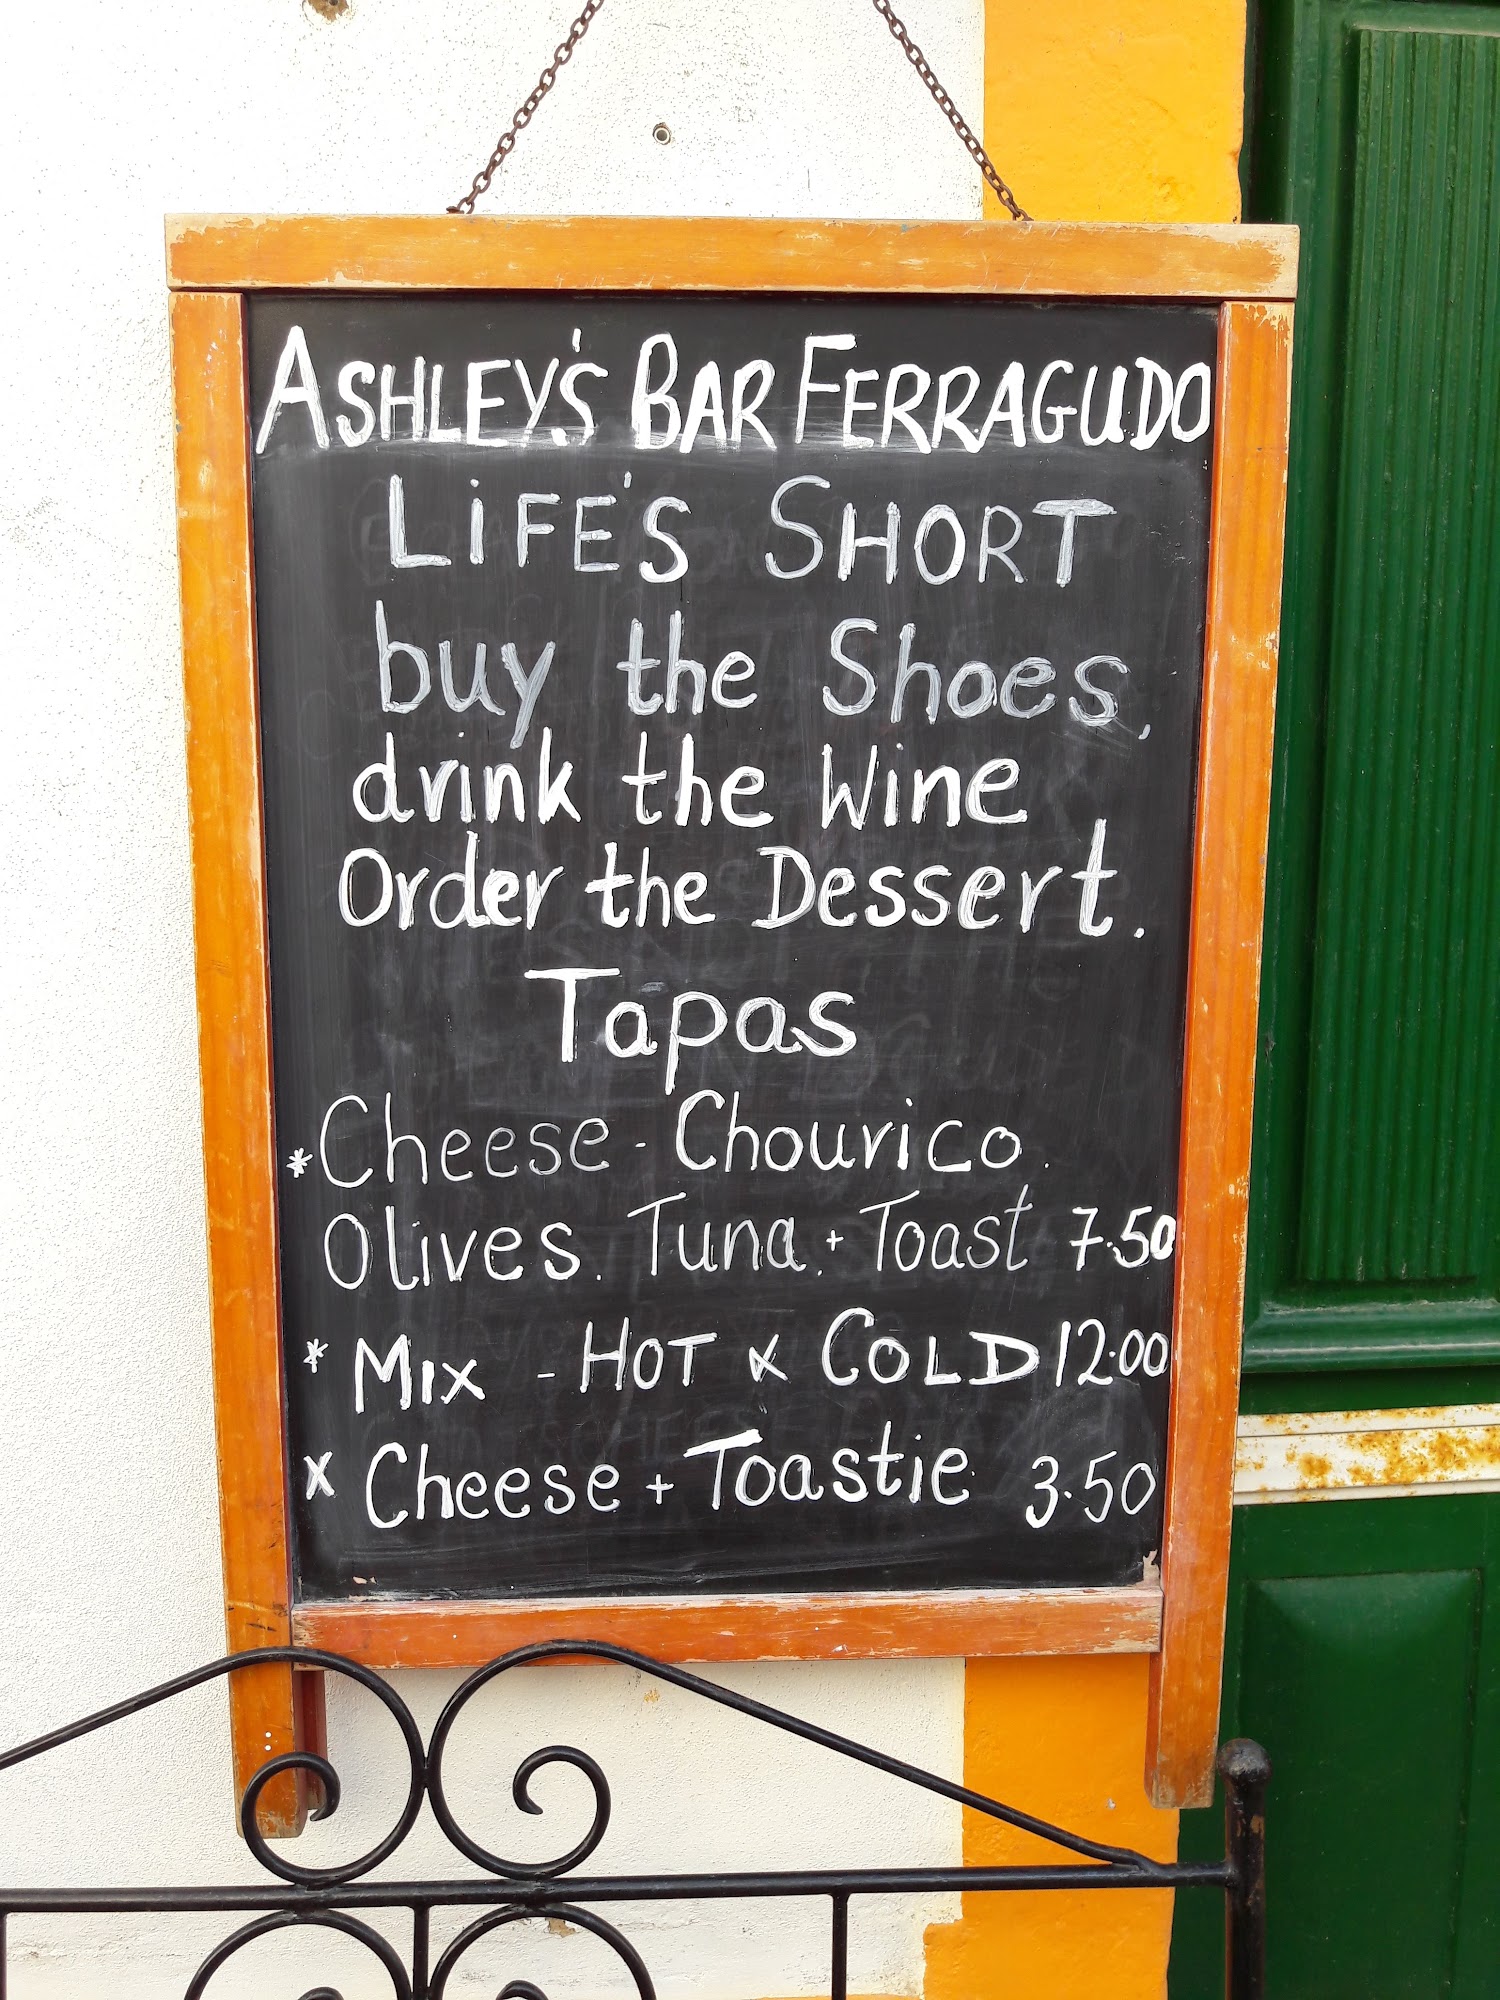 ASHLEY'S BAR FERRAGUDO
LiFE'S SHORT
buy the Shoes,
drink the Wine
Order the Dessert.
Tapas
* Cheese - Chourico.
Olives. Tuna. + Toast 7.50
* MIX - HOT & COLD 12.00
x Cheese + Toastie 3.50